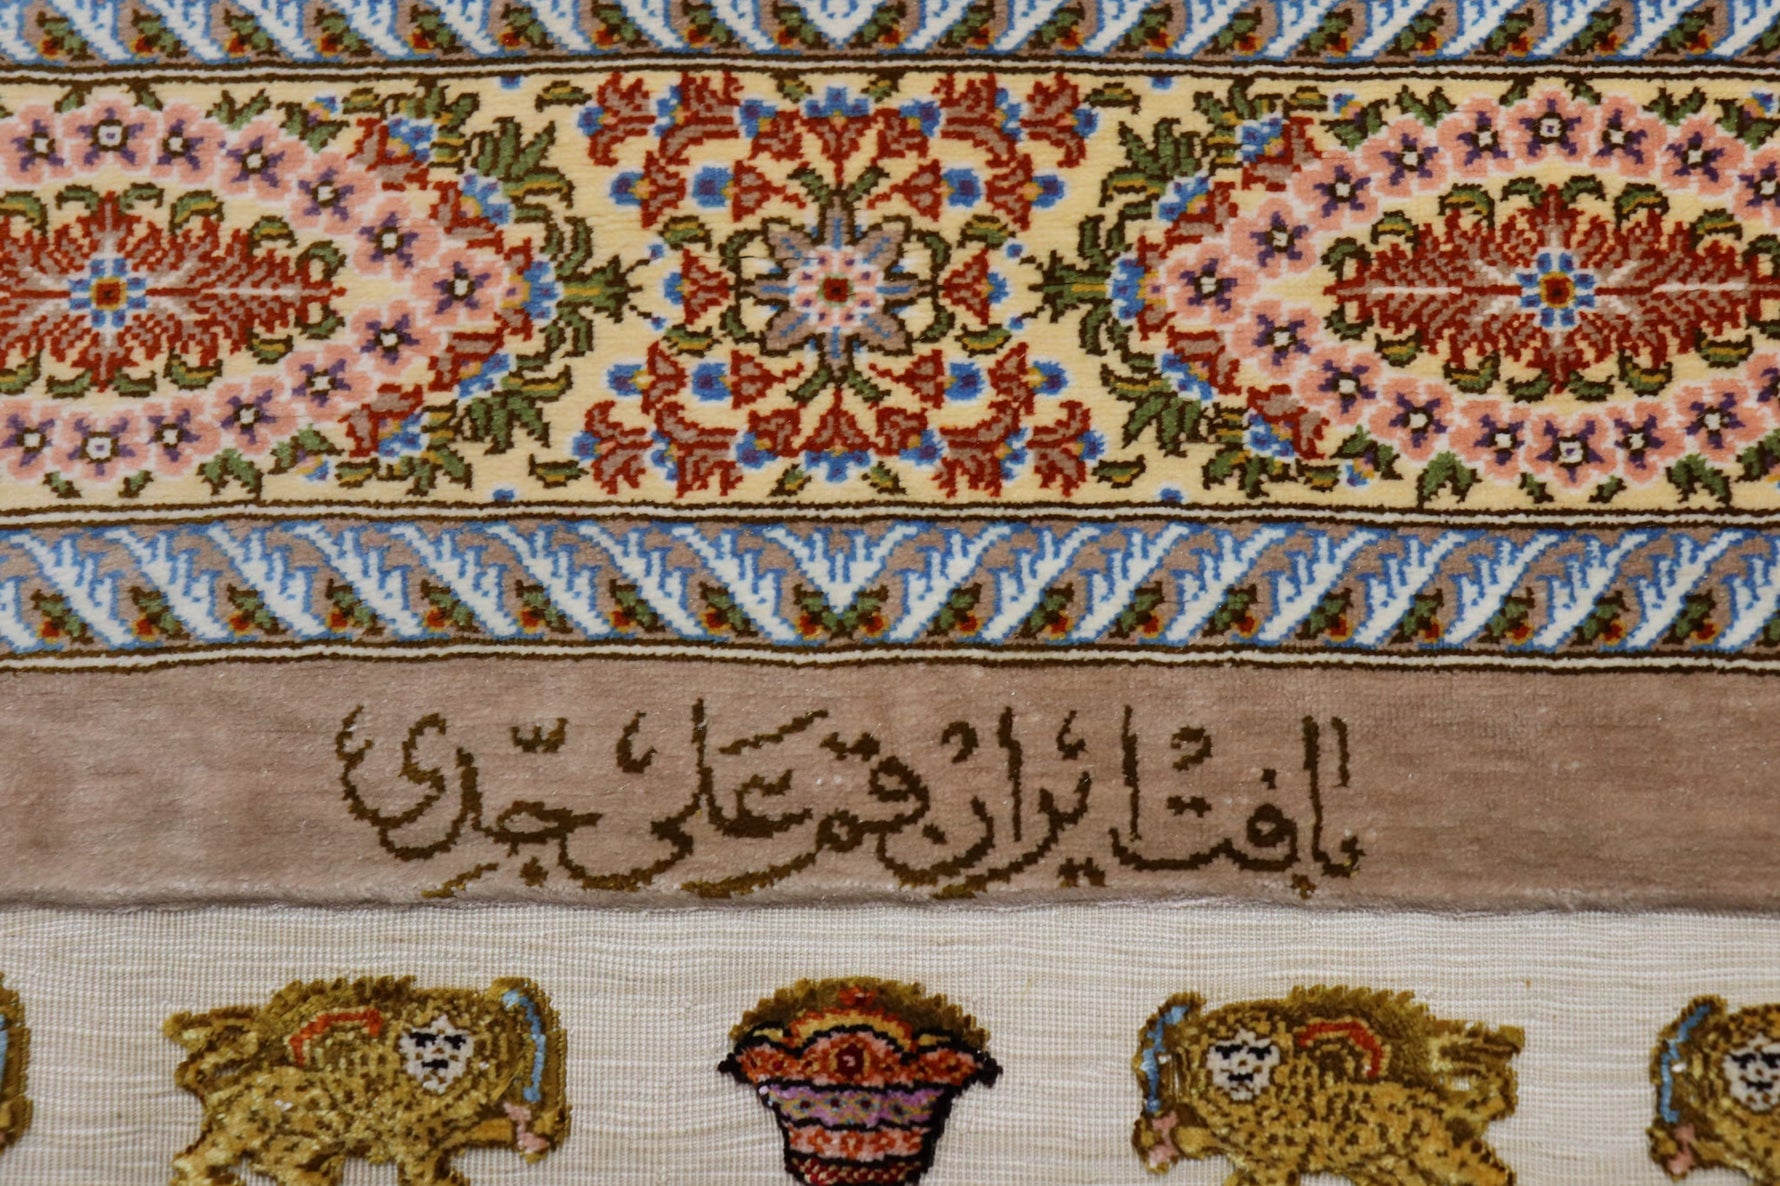 بافت ایران قم علی جدّی